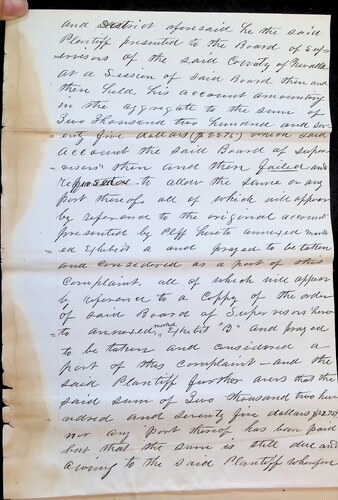 and District aforesaid he the said
Plaintiff presented to the Board of Sup-
ervisors of the said County of Nevada
at a Session of said Board then and
there held his account amounting
in the aggregate to the sum of
Two Thousand two hundred and sev-
enty five dollars ($2275) which said
account the said Board of Super-
visors then and there failed and
refused to allow the same or any
part thereof, all of which will appear
by reference to the original account
presented by Plff hereto annexed mark-
ed Exhibit A and prayed to be taken
and considered as a part of this
Complaint. all of which will appear
by reference to a Coppy of the order
of said Board of Supervisors here-
to annexed marked Exhibit "B" and prayed
to be taken and considered a
part of this complaint – and the
said Plaintiff further avers that the
said sum of Two thousand two hu-
ndred and seventy five dollars ($2275)
nor any part thereof has been paid
but that the same is still due and
owing to the said Plaintiff wherefore